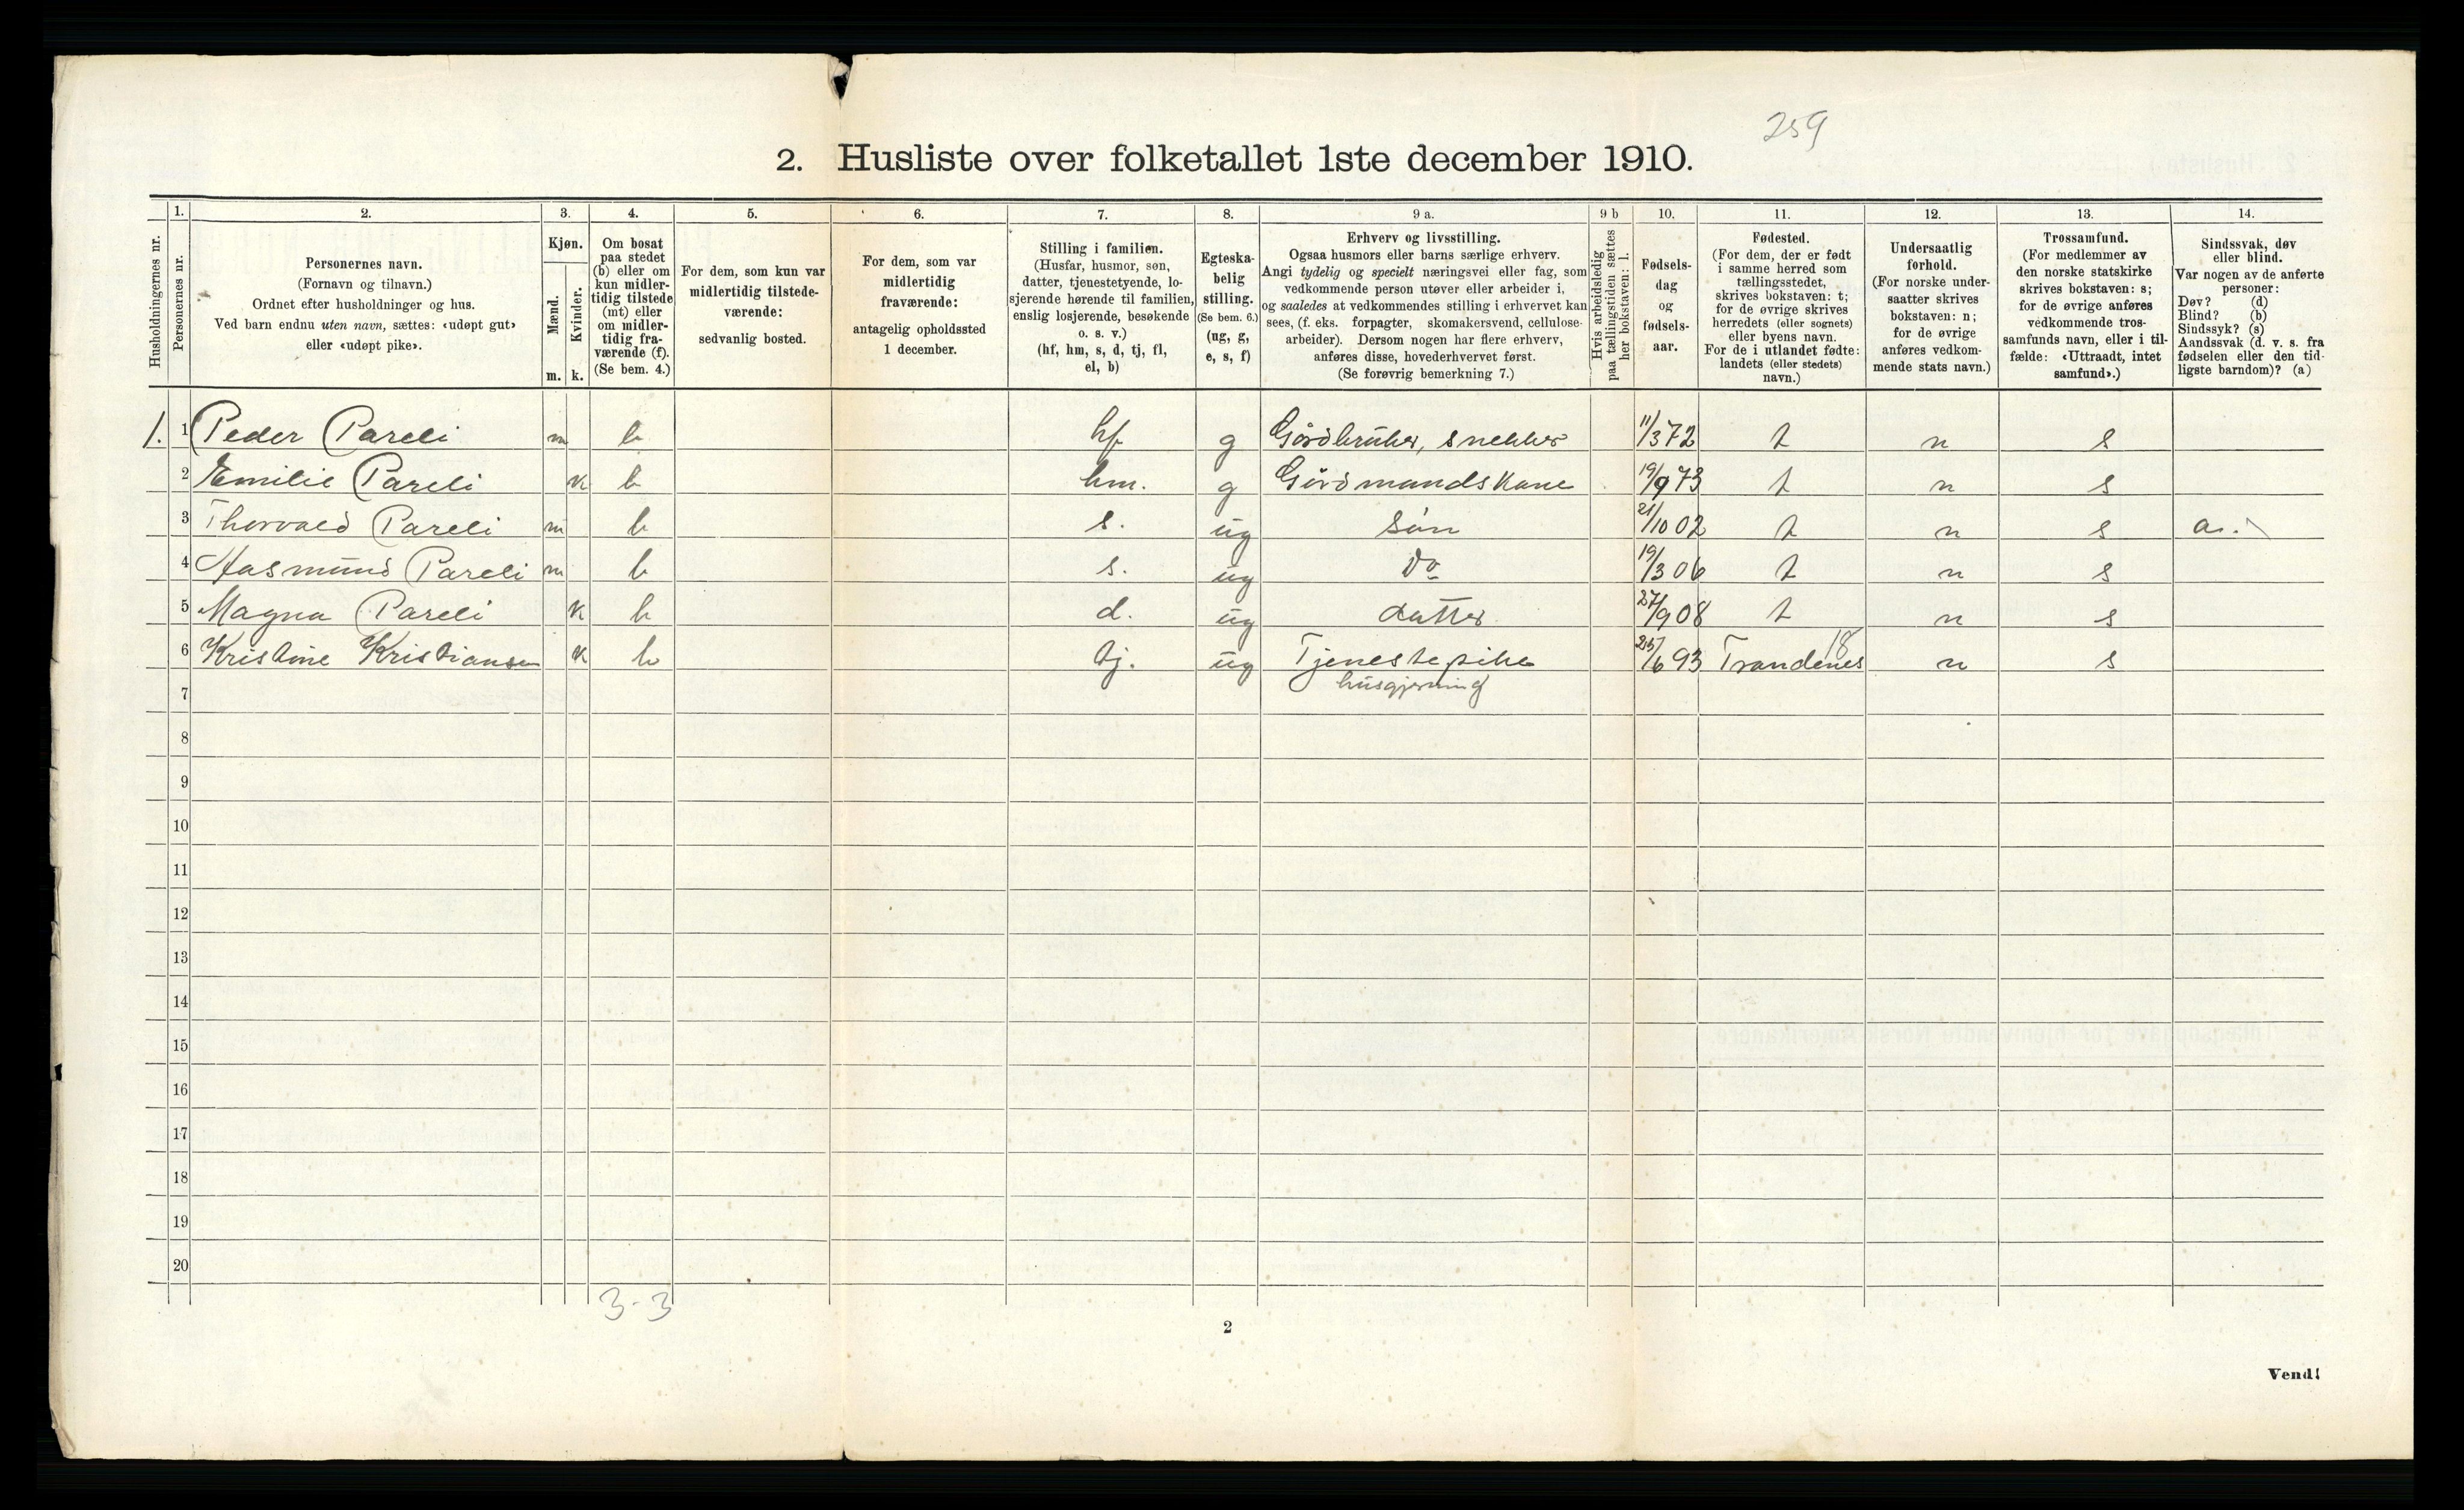 259
2. Husliste over folketallet 1ste december 1910.
1. 2. 3. 4. 5. 6. 7. 8. 9 a. 9 b 10. 11. 12. 13. 14.
Husholdningernes nr.
Personernes nr.
Personernes navn.
(Fornavn og tilnavn.)
Ordnet efter husholdninger og hus.
Ved barn endnu uten navn, sættes: «udøpt gut»
eller «udøpt pike».
Kjøn.
Mænd.
Kvinder.
m. k.
Om bosat
paa stedet
(b) eller om
kun midler-
tidig tilstede
(mt) eller
om midler-
tidig fra-
værende (f).
(Se bem. 4.)
For dem, som kun var
midlertidig tilstede-
værende:
sedvanlig bosted.
For dem, som var
midlertidig
fraværende:
antagelig opholdssted
1 december.
Stilling i familien.
(Husfar, husmor, søn,
datter, tjenestetyende, lo-
sjerende hørende til familien,
enslig losjerende, besøkende
o. s. v.)
(hf, hm, s, d, tj, fl,
el, b)
Egteska-
belig
stilling.
(Se bem. 6.)
(ug, g,
e, s, f)
Erhverv og livsstilling.
Ogsaa husmors eller barns særlige erhverv.
Angi tydelig og specielt næringsvei eller fag, som
vedkommende person utøver eller arbeider i,
og saaledes at vedkommendes stilling i erhvervet kan
sees, (f. eks. forpagter, skomakersvend, cellulose-
arbeider). Dersom nogen har flere erhverv,
anføres disse, hovederhvervet først.
(Se forøvrig bemerkning 7.)
Hvis arbeidsledig
paa tællingstiden sættes
her bokstaven: l.
Fødsels-
dag
og
fødsels-
aar.
Fødested.
(For dem, der er født
i samme herred som
tællingsstedet,
skrives bokstaven: t;
for de øvrige skrives
herredets (eller sognets)
eller byens navn.
For de i utlandet fødte:
landets (eller stedets)
navn.)
Undersaatlig
forhold.
(For norske under-
saatter skrives
bokstaven: n;
for de øvrige
anføres vedkom-
mende stats navn.)
Trossamfund.
(For medlemmer av
den norske statskirke
skrives bokstaven: s;
for de øvrige anføres
vedkommende tros-
samfunds navn, eller i til-
fælde: «Uttraadt, intet
samfund».)
Sindssvak, døv
eller blind.
Var nogen av de anførte
personer:
Døv? (d)
Blind? (b)
Sindssyk? (s)
Aandssvak (d. v. s. fra
fødselen eller den tid-
ligste barndom)? (a)
1. 1 Peder Pareli m b hf g Gårdbruker, snekker 11/3 72 t n s
2 Emilie Pareli k b hm. g Gårdmandskone 19/9 73 t n s
3 Thorvald Pareli m b s. ug søn 21/10 02 t n s a.
4 Aasmund Pareli m b s. ug Do 19/3 06 t n s
5 Magna Pareli k b d. ug datter 27/9 08 t n s
18
6 Kristine Kristiansen k b tj. ug Tjenestepike 25/6 93 Trandenes n s
7 husgjerning
8
9
10
11
12
13
14
15
16
17
18
19
20
3-3
2
Vend!